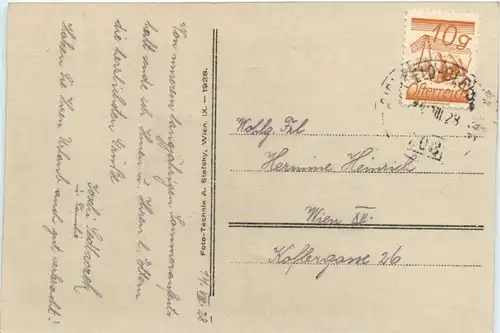 Von unserem langjährigen Sommeraufent-
halt sende ich Ihnen u. Ihren l. Eltern
die herrlichsten Grüße
u. Familie
Haben Sie Ihren Urlaub auch gut verbracht?
14. VIII. 28
Foto-Technik A. Stefsky, Wien, IX. – 1928.
10g
Österreich
VIII 28
Wohlg. Frl.
Hermine Heinrich
Wien XII.
Koflergasse 26